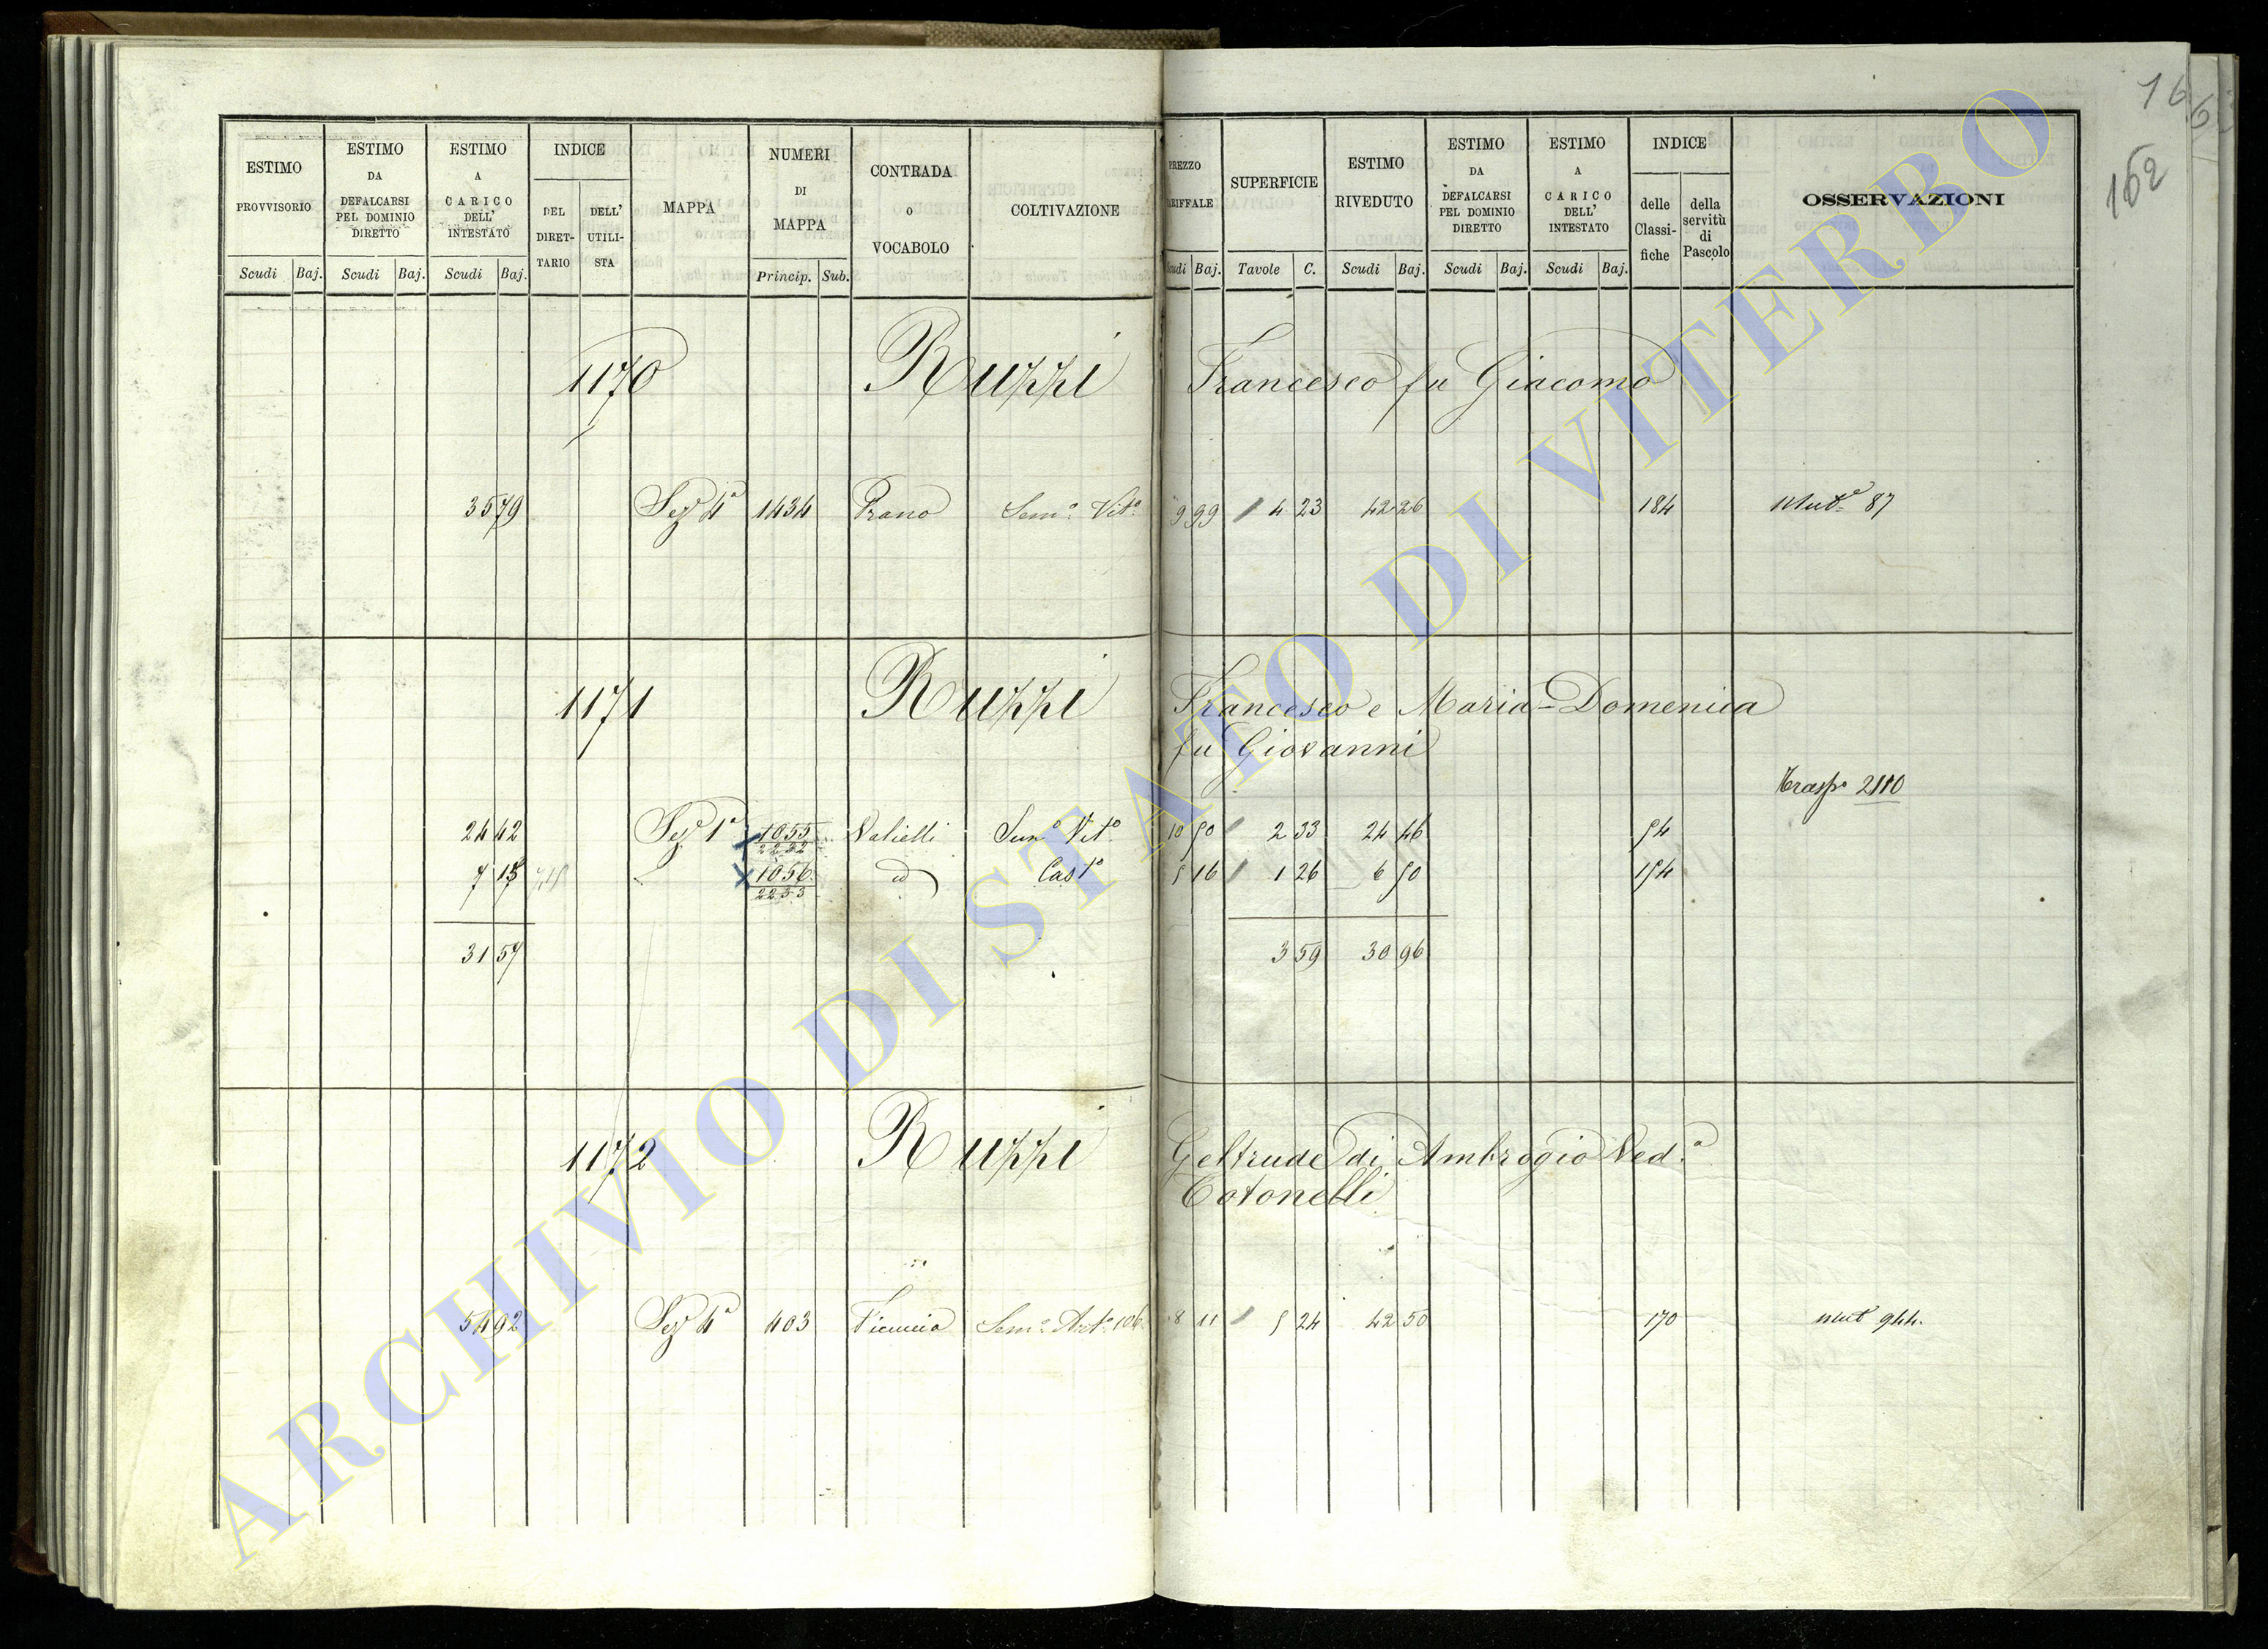 166
162
ESTIMO PROVVISORIO
ESTIMO DA DEFALCARSI PEL DOMINIO DIRETTO
ESTIMO A CARICO DELL' INTESTATO
INDICE
DEL DIRET-TARIO
DELL' UTILI-STA
MAPPA
NUMERI DI MAPPA
CONTRADA O VOCABOLO
COLTIVAZIONE
PREZZO
SUPERFICIE
ESTIMO RIVEDUTO
ESTIMO DA DEFALCARSI PEL DOMINIO DIRETTO
ESTIMO A CARICO DELL' INTESTATO
INDICE
delle Classi-fiche
della servitù di Pascolo
OSSERVAZIONI
Scudi Baj. Scudi Baj. Scudi Baj. Princip. Sub. Baj. Tavole C. Scudi Baj. Scudi Baj. Scudi Baj.
1170 Ruzzi Francesco fu Giacomo
35 79 Sez.e 4a 1434 Prano Sem.o Vit.o 9 99 4 23 42 26 184 Mut.e 87
1171 Ruzzi Francesco e Maria-Domenica
fu Giovanni
Trasp.o 2110
24 42 Sez.e 1a 1055 Sem.o Vit.o 10 50 2 33 24 46 54
2232
7 15 1056 id Cast.o 5 16 1 26 6 50 154
2233
31 57 3 59 30 96
1172 Ruzzi Geltrude di Ambrogio Ved.a
Cotonelli
54 92 Sez.e 4a 403 Ficuccia Sem.o Art.o 106 8 11 5 24 42 50 170 mut 944.
ARCHIVIO DI STATO DI VITERBO